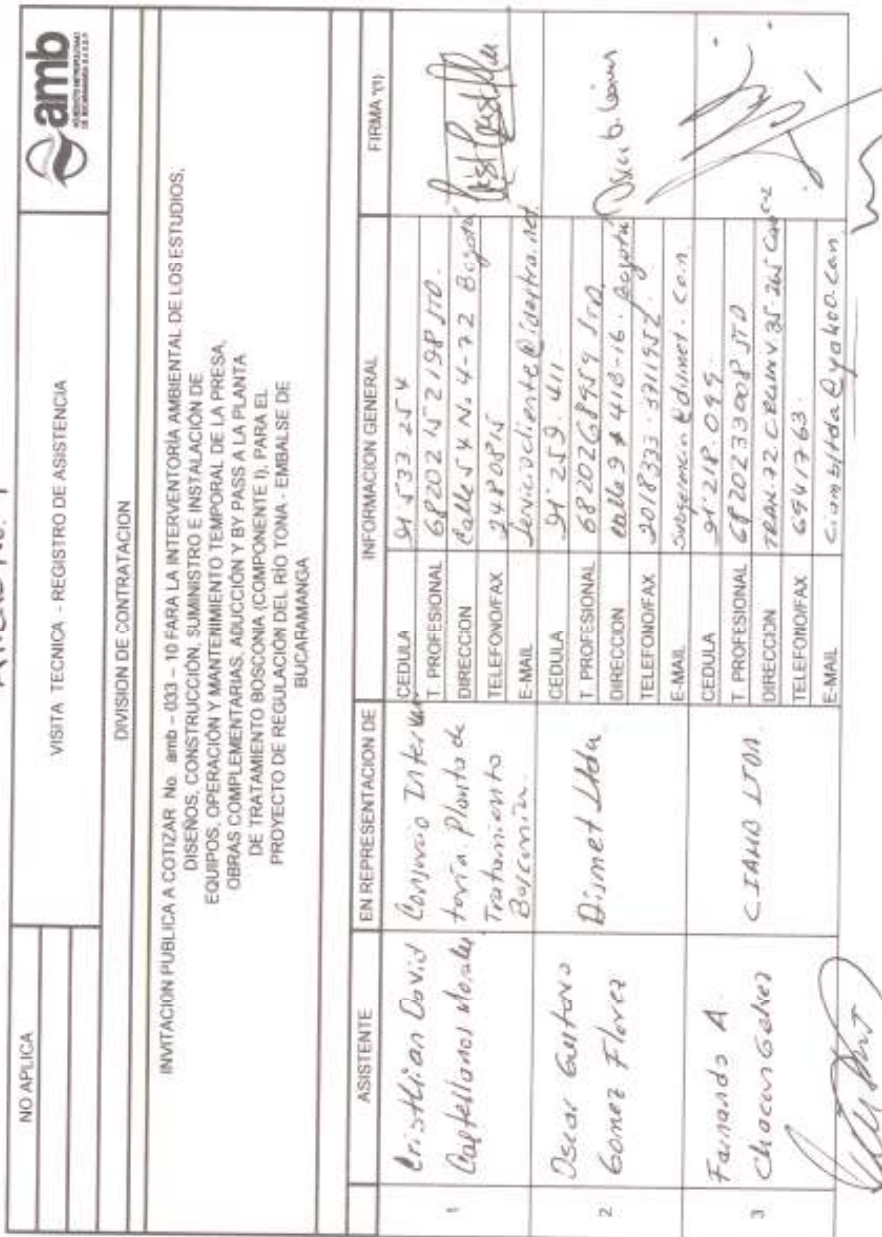 NO APLICA
VISITA TECNICA - REGISTRO DE ASISTENCIA
amb
DIVISION DE CONTRATACION
INVITACION PUBLICA A COTIZAR No. amb – 033 – 10 FARA LA INTERVENTORÍA AMBIENTAL DE LOS ESTUDIOS,
DISEÑOS, CONSTRUCCIÓN, SUMINISTRO E INSTALACIÓN DE
EQUIPOS, OPERACIÓN Y MANTENIMIENTO TEMPORAL DE LA PRESA,
OBRAS COMPLEMENTARIAS, ADUCCIÓN Y BY PASS A LA PLANTA
DE TRATAMIENTO BOSCONIA (COMPONENTE I), PARA EL
PROYECTO DE REGULACIÓN DEL RÍO TONA - EMBALSE DE
BUCARAMANGA
ASISTENTE EN REPRESENTACION DE INFORMACION GENERAL FIRMA *(1)
1
Cristhian David
Castellanos Morales
Consorcio Interven
toría Planta de
Tratamiento
Bosconia.
CEDULA 91'533.254
T. PROFESIONAL 68202152198 STD.
DIRECCION Calle 54 No. 4-72 Bogotá
TELEFONO/FAX 2480815
E-MAIL
2
Oscar Gustavo
Gomez Florez
Dismet Ltda.
CEDULA 91'259.411
T. PROFESIONAL 6820268959 STD.
DIRECCION Calle 9 # 41B-16. Bogotá
TELEFONO/FAX 2018333 - 3711952.
E-MAIL
3
Fernando A.
Chacon Galvez
CIAMB LTDA.
CEDULA 91'218.099.
T. PROFESIONAL 6820233008 STD
DIRECCION
TELEFONO/FAX 6941763.
E-MAIL ciambltda@yahoo.com